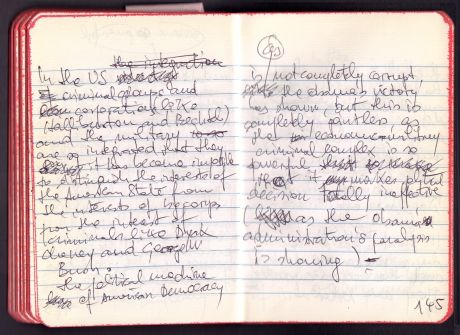 the internation
In the US
criminal groups and
corporations like
(Halliburton and Bechtel)
and the military
are so integrated that they
it has become impossible
to distinguish the interests of
the American State from
the interests of the corps
from the interest of
criminals like Dick
Cheney and George W
Bush.
The political machine
of American Democracy
is not completely corrupt,
the Obama's victory
shown, but this is
completely pointless, as
the economic military
criminal complex is so
powerful
that it makes political
decision totally ineffective
(as the Obama
administration's paralysis
is showing)
145